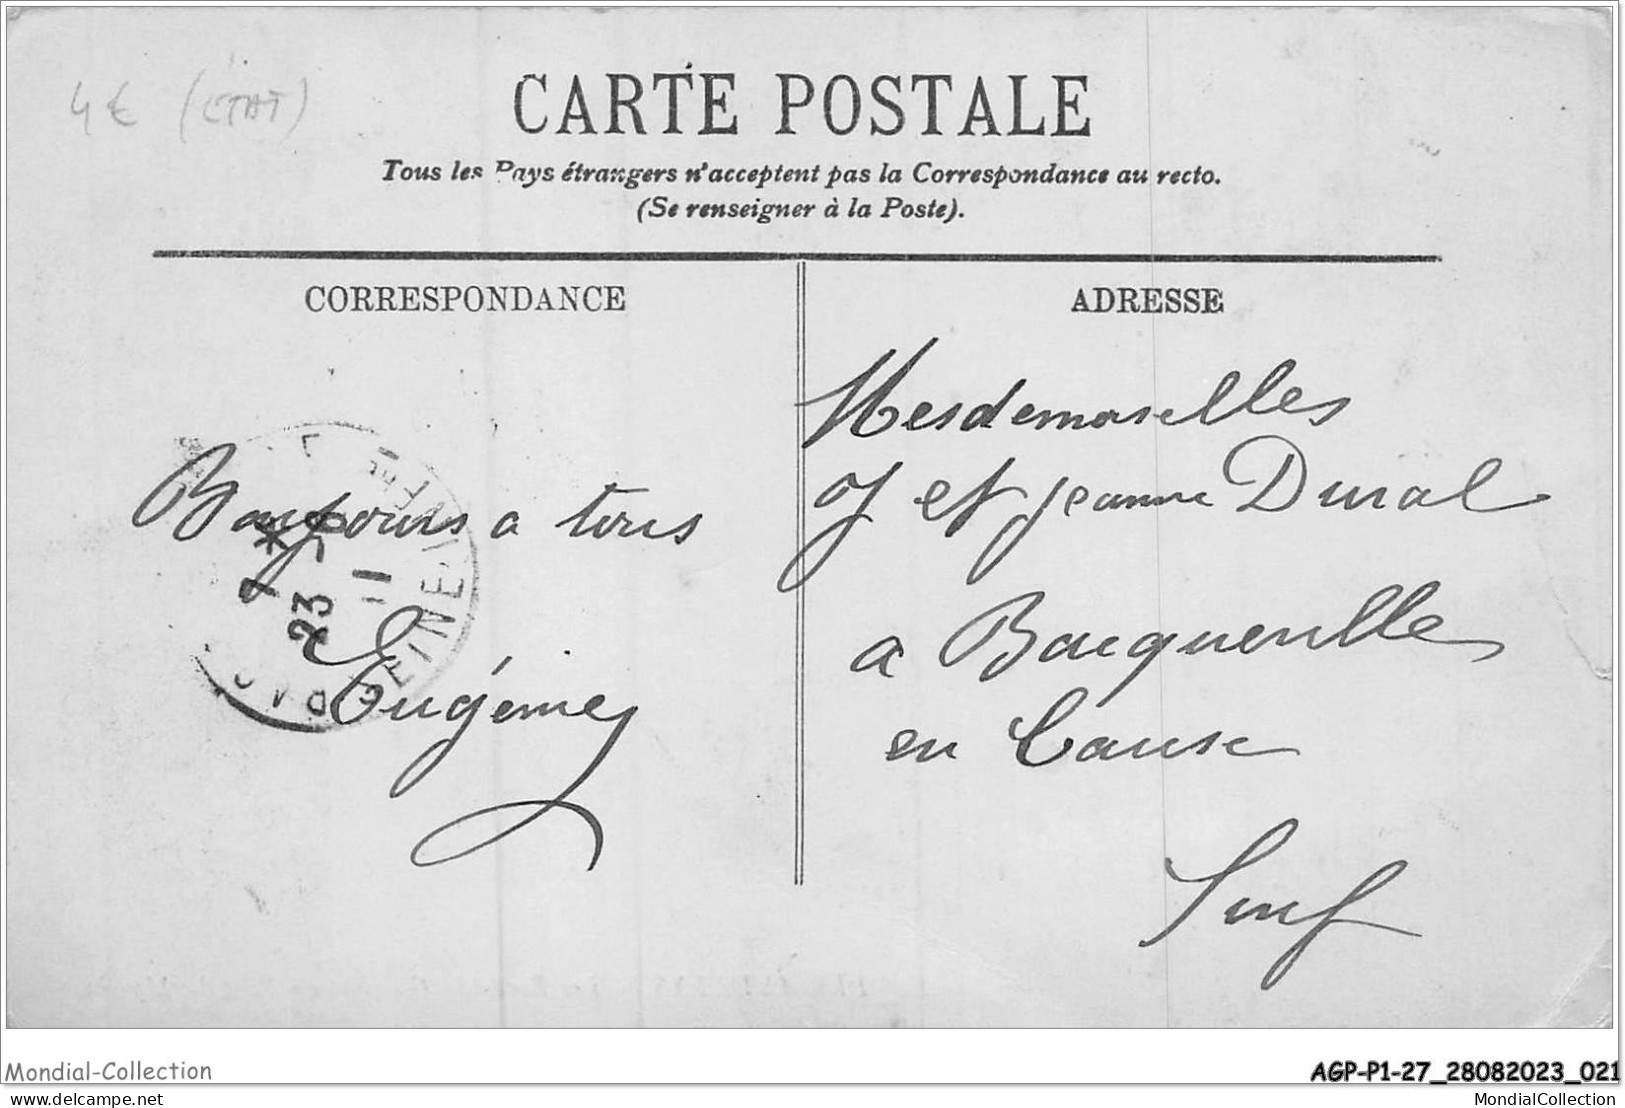 4€ (ETAT)
CARTE POSTALE
Tous les Pays étrangers n'acceptent pas la Correspondance au recto.
(Se renseigner à la Poste).
CORRESPONDANCE
Bonjours a tous
Eugénie
7 *
23 -
11
INFERIEURE
ADRESSE
Mesdemoselles
et Jeanne Duval
a Bacqueville
en Cause
Inf
Mondial-Collection
AGP-P1-27_28082023_021
delcampe.net
MondialCollection